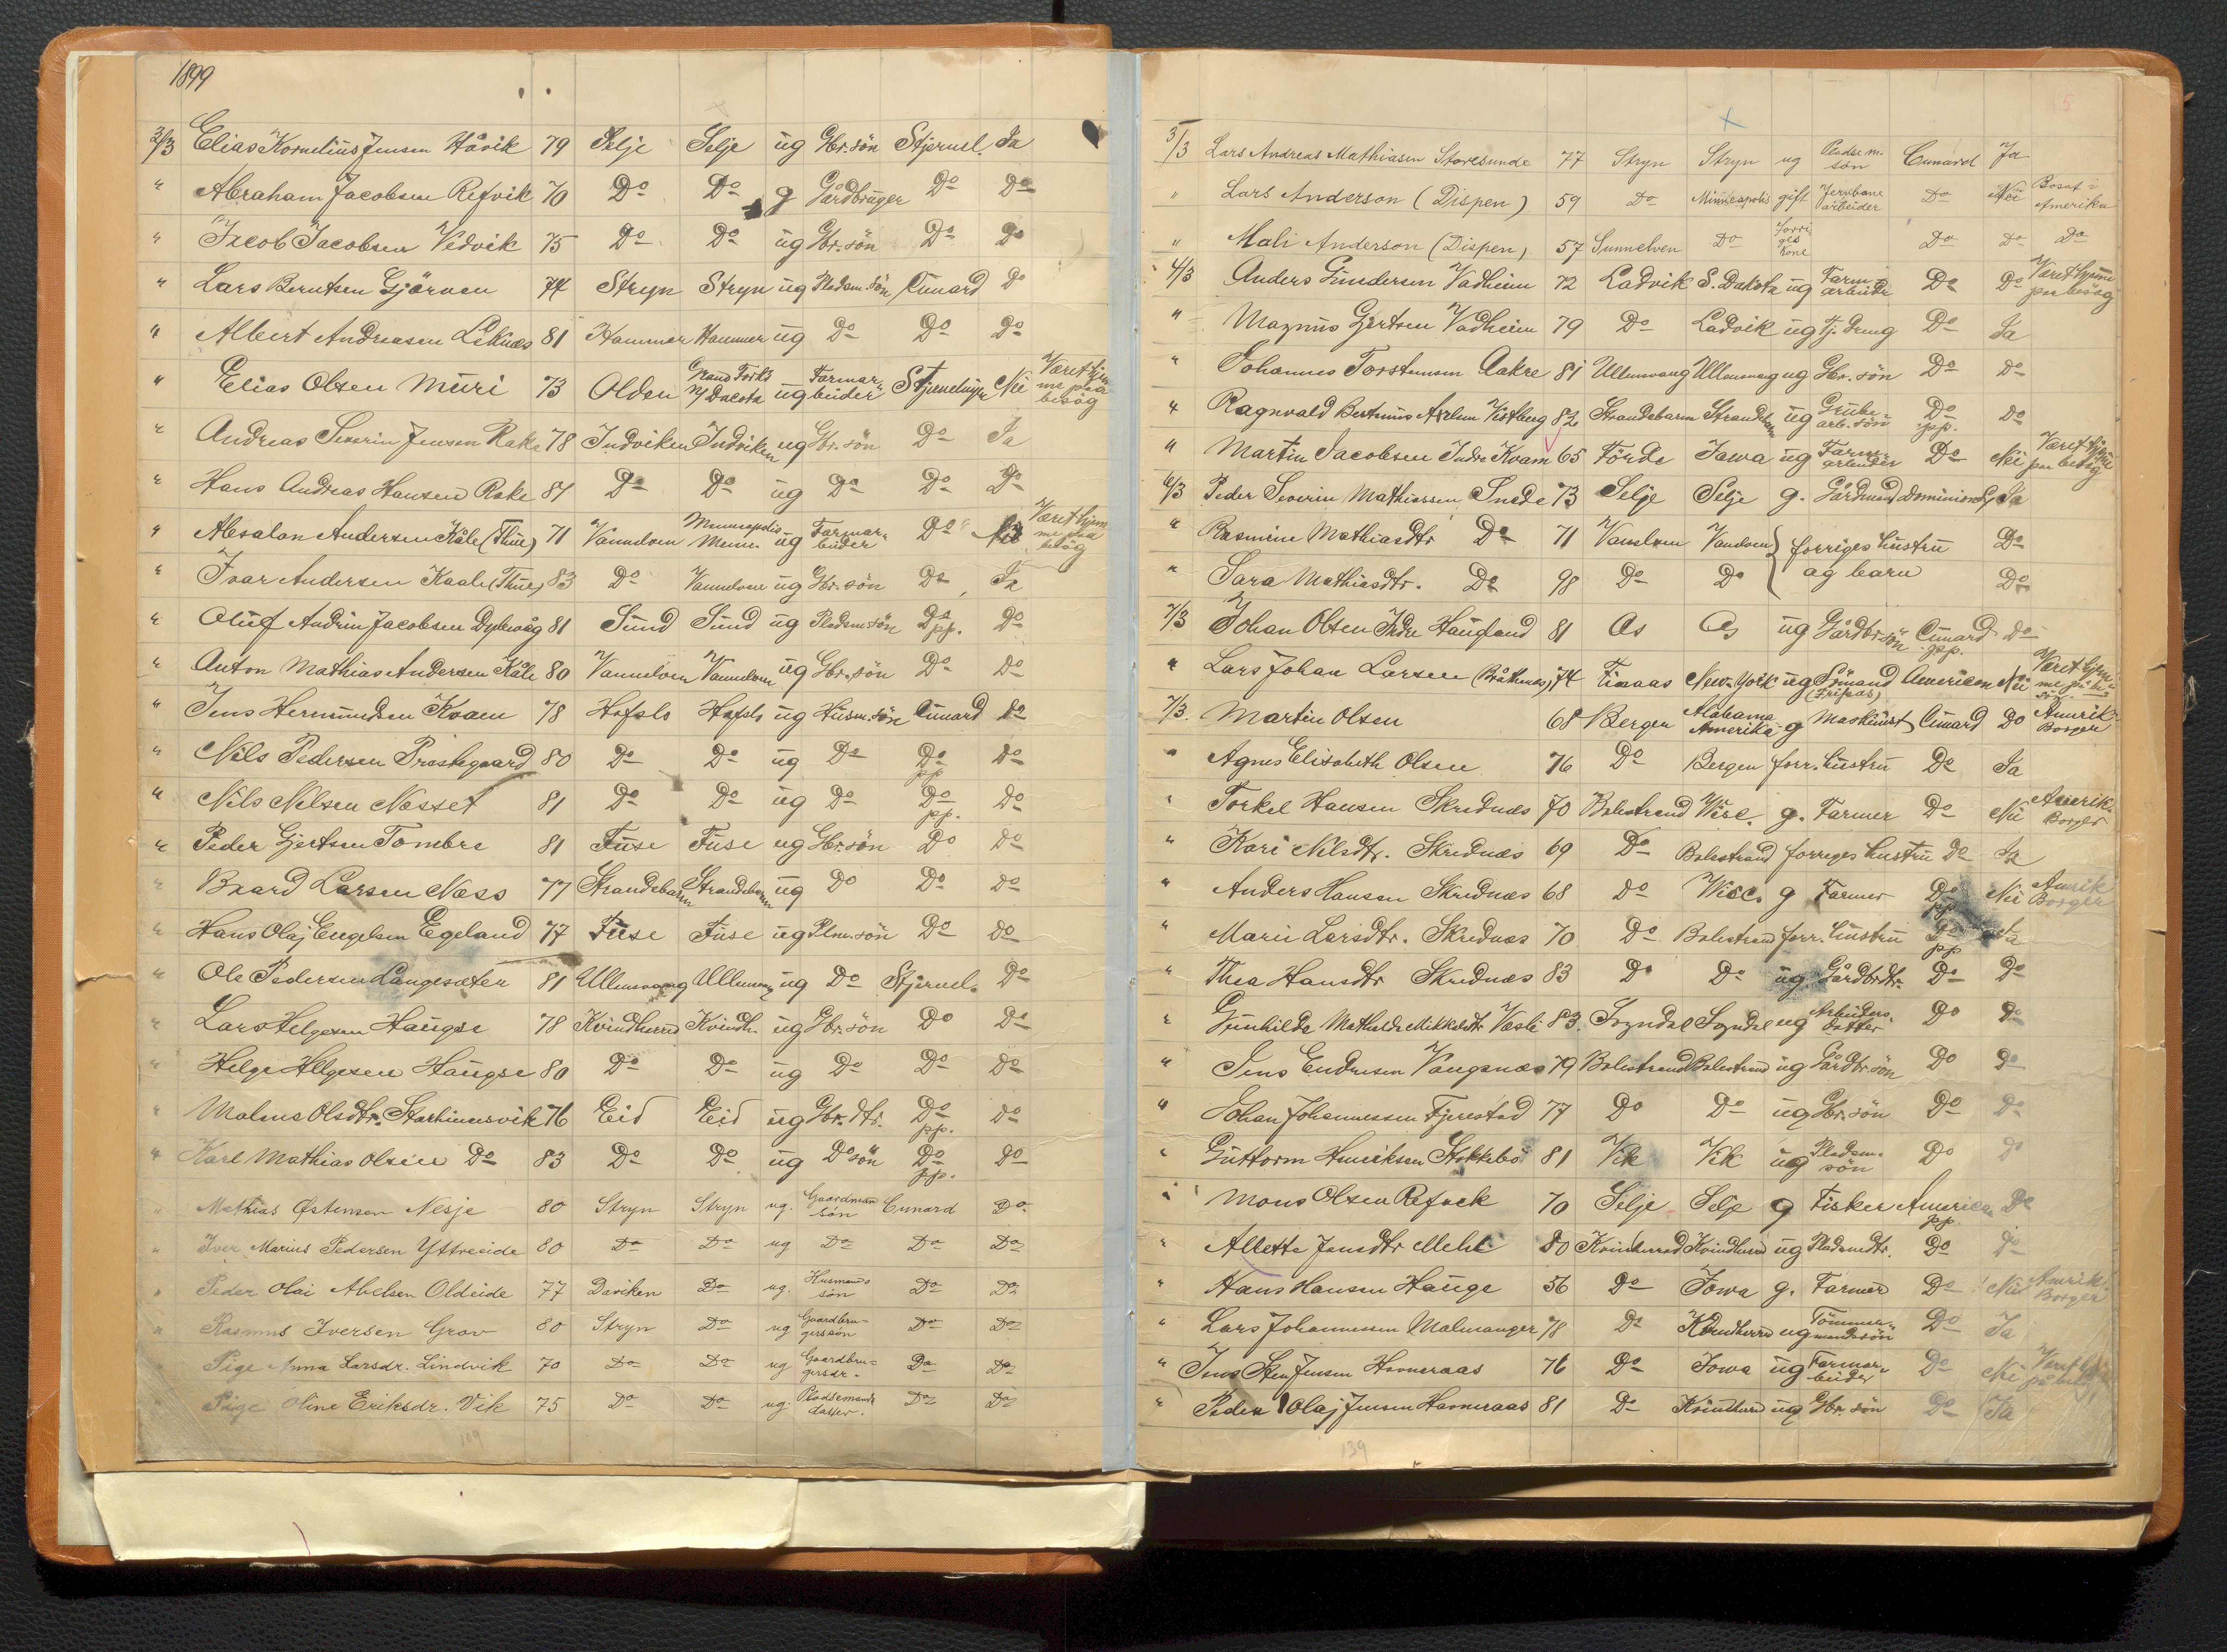 1899
2/3 Elias Kornelius Jensen Håvik 79 Selje Selje ug Gbr. sön Stjernel. Ja
" Abraham Jacobsen Refvik 70 Do Do g Gårdbruger Do Do
" Jacob Jacobsen Vedvik 75 Do Do ug Gbr. sön Do Do
" Lars Berntsen Gjörven 74 Stryn Stryn ug Pladsm. sön Cunard Do
" Albert Andreasen Leknæs 81 Hammer Hammer ug Do Do Do
" Elias Olsen Muri 73 Olden Grand Forks N/Dacota ug Farmarbeider Stjernelinjen Nei Været hjemme paa besög
" Andreas Severin Jensen Rake 78 Indviken Indviken ug Gbr. sön Do Ja
" Hans Andreas Hansen Rake 81 Do Do ug Do Do Do
" Absalon Andersen Kåle (Thue) 71 Vannelven Minneapolis Minn. ug Farmarbeider Do Nei Været hjemme paa besög
" Ivar Andersen Kaale (Thue) 83 Do Vannelven ug Gbr. sön Do Ja
" Oluf Andrin Jacobsen Dybevåg 81 Sund Sund ug Pladsm sön Do pp. Do
" Anton Mathias Andersen Kåle 80 Vannelven Vannelven ug Gbr. sön Do Do
" Jens Hermundsen Kvaen 78 Hafslo Hafslo ug Husm. sön Cunard Do
" Nils Pedersen Præstegaard 80 Do Do ug Do Do pp Do
" Nils Nilsen Nesset 81 Do Do ug Do Do pp. Do
" Peder Gjertsen Tombre 81 Fuse Fuse ug Gbr. sön Do Do
" Baard Larsen Næss 77 Strandebarm Strandebarm ug Do Do Do
" Hans Olaj Engelsen Egeland 77 Fuse Fuse ug Plm. sön Do Do
" Ole Pedersen Langesæter 81 Ullensvang Ullensvang ug Do Stjernel. Do
" Lars Helgesen Haugse 78 Kvindherred Kvindh. ug Gbr. sön Do Do
" Helge Helgesen Haugse 80 Do Do ug Do Do Do
" Malene Olsdtr. Starheimsvik 76 Eid Eid ug Gbr. dtr. Do pp. Do
" Karl Mathias Olsen Do 83 Do Do ug Do sön Do pp. Do
" Mathias Østensen Nesje 80 Stryn Stryn ug. Gaardman sön Cunard Do
" Iver Marius Pedersen Yttreeide 80 Do Do ug Do Do Do
" Peder Olai Abelsen Oldeide 77 Daviken Do ug. Husmands sön Do Do
" Rasmus Iversen Grov 80 Stryn Do ug Gaardbrugerssön Do Do
" Pige Anna Larsdr. Lindvik 70 Do Do ug Gaardbrugersdr. Do Do
" Pige Oline Eriksdr. Vik 75 Do Do ug. Pladsemands datter. Do Do
109
3/3 Lars Andreas Mathiasen Storesunde 77 Stryn Stryn ug Pladsem. sön Cunard Ja
" Lars Anderson (Dispen) 59 Do Minneapolis gift Jernbane arbeider Do Nei Bosat i Amerika
" Mali Anderson (Dispen) 57 Sunnelven Do Forriges Kone Do Do Do
4/3 Anders Gundersen Vadheim 72 Ladvik S. Dakota ug Farmarbeider Do Do Været hjemme paa besög
" Magnus Gjertsen Vadheim 79 Do Ladvik ug Tj. dreng Do Ja
" Johannes Torsteinsen Aakre 81 Ullensvang Ullensvang ug Gbr. sön Do Do
" Ragnvald Bertinius Axelsen Vistberg 82 Strandebarm Strandebarm ug Grubearb. sön Do pp. Do
" Martin Jacobsen Indre Kvam 65 Förde Iowa ug Farmarbeider Do Nei Været hjemme paa besög
6/3 Peder Severin Mathiassen Snede 73 Selje Selje g. Gårdmand Dominion L. Ja
" Rasmine Mathiasdtr Do 71 Vanelven Vanelven } forriges hustru Do
" Sara Mathiasdtr. Do 98 Do Do og barn Do
7/3 Johan Olsen Indre Haugland 81 Os Os ug Gårdbr sön Cunard pp. Do
" Lars Johan Larsen (Bråthnes) 74 Finaas New-York ug Sömand (Fripas) American Nei Været hjemme på besög
7/3. Martin Olsen 68 Bergen Alabama Amerika g Maskinist Cunard Do Amerik Borger
" Agnes Elisabeth Olsen 76 Do Bergen forr. hustru Do Ja
" Torkel Hansen Skrednæs 70 Balestrand Wisc. g. Farmer Do Nei Amerik. Borger
" Kari Nilsdtr. Skrednæs 69 Do Balestrand forriges hustru Do Ja
" Anders Hansen Skrednæs 68 Do Wisc. g Farmer Do pp Nei Amerik Borger
" Marie Larsdtr. Skrednæs 70 Do Balestrand forr. hustru Do pp Ja
" Thea Hansdtr Skrednæs 83 Do Do ug. Gårdbrdtr. Do Do
" Gunhilde Mathilde Mikkelsdtr Væsli 83. Sogndal Sogndal ug Arbeiders datter Do Do
" Jens Endresen Vangsnæs 79 Balestrand Balestrand ug Gårdbr. sön Do Do
" Johan Johannessen Fjerestad 77 Do Do ug Gbr. sön Do Do
" Guttorm Henriksen Stokkebö 81 Vik Vik ug Pladsm. sön Do Do
" Mons Olsen Refvek 70 Selje Selje g Fisker American pp Do
" Allette Jensdtr Mehl 80 Kvindherred Kvindherred ug Pladsmdtr. Do Do
" Hans Hansen Hauge 56 Do Iowa g. Farmer Do Nei Amerik. Borger
" Lars Johannessen Malmanger 78 Do Kvindherred ug Tömmermandssön Do Ja
" Jens Sten Jensen Hovneraas 76 Do Iowa ug Farmarbeider Do Nei
" Peder Olaj Jensen Hovneraas 81 Do Kvindherred ug Gbr. sön Do Ja
139